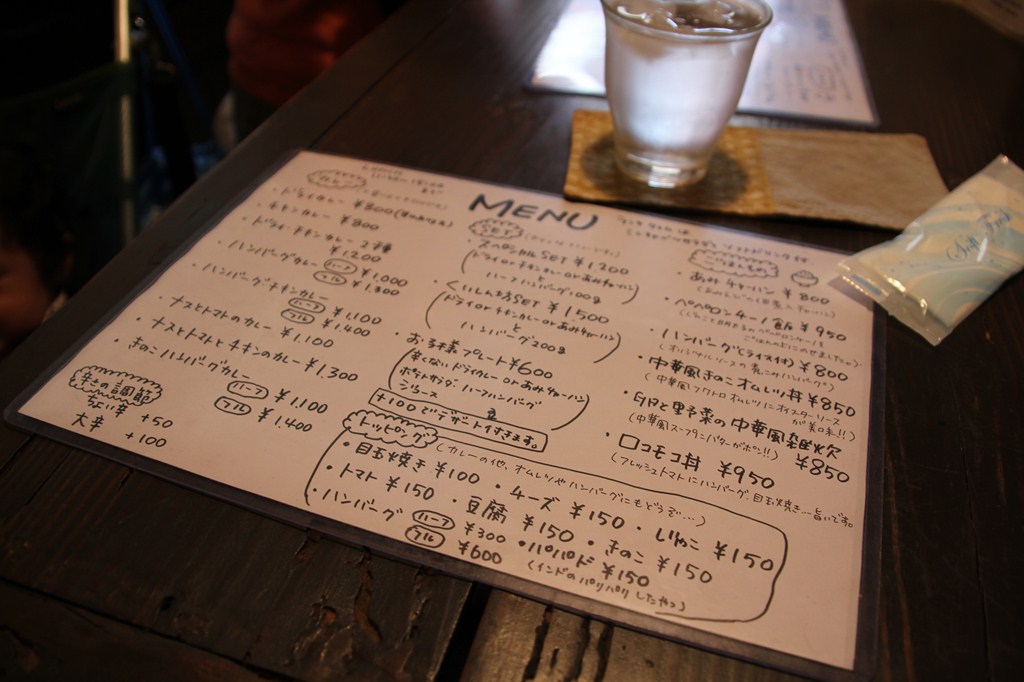 MENU
カレー
・ドライカレー ¥800
・チキンカレー ¥800
・ドライ・チキンカレー 2種 ¥1,200
・ハンバーグカレー ハーフ ¥1,000
フル ¥1,300
・ハンバーグチキンカレー ハーフ ¥1,100
フル ¥1,400
・ナスとトマトのカレー ¥1,100
・ナストマトとチキンのカレー ¥1,300
・きのこハンバーグカレー
ハーフ ¥1,100
フル ¥1,400
辛さの調節
大辛 +50
+100
SET
・スペシャルSET ¥1,200
(ドライ or チキンカレー or あみチャーハン
ハーフハンバーグ100g)
・くいしんぼSET ¥1500
(ドライ or チキンカレー or あみチャーハン
と
ハンバーグ 200g)
・お子様プレート¥600
辛くないドライカレー or あみチャーハン
ポテトサラダ・ハーフハンバーグ
+100でデザート付きます。
ごはんもの
・あみチャーハン ¥800
・ペペロンチーノ飯 ¥950
・ハンバーグ(ライス付) ¥800
・中華風きのこオムレツ丼 ¥850
(中華風フワトロオムレツにオイスターソースが美味!!)
・卵と野菜の中華風雑炊 ¥850
(中華風スープにバターがポン!!)
・ロコモコ丼 ¥950
(フレッシュトマトにハンバーグ、目玉焼き…旨いです。)
トッピング
(カレーの他、オムレツやハンバーグにもどうぞ…)
・目玉焼き ¥100 ・チーズ ¥150 ・しめじ ¥150
・トマト ¥150 ・豆腐 ¥150 ・きのこ ¥150
・ハンバーグ ハーフ ¥300 ・パパド ¥150
フル ¥600 (インドのパリパリしたやつ)